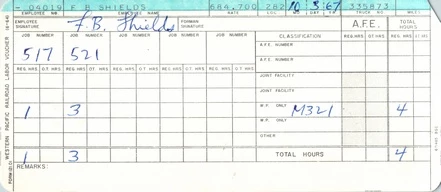 04019 F B SHIELDS 684.700 282 10 3 67 335873
EMPLOYEE NAME RATE DAY TRUCK NO.
EMPLOYEE SIGNATURE F.B. Shields FOREMAN SIGNATURE CLASSIFICATION A.F.E. TOTAL HOURS
JOB NUMBER JOB NUMBER JOB NUMBER JOB NUMBER JOB NUMBER REG HRS OT HRS
517 521 A.F.E. NUMBER
A.F.E. NUMBER
REG HRS OT HRS REG HRS OT HRS REG HRS OT HRS REG HRS OT HRS REG HRS OT HRS JOINT FACILITY
JOINT FACILITY
1 3 W.P. ONLY M321 4
W.P. ONLY
OTHER
1 3 TOTAL HOURS 4
REMARKS:
WESTERN PACIFIC RAILROAD LABOR VOUCHER